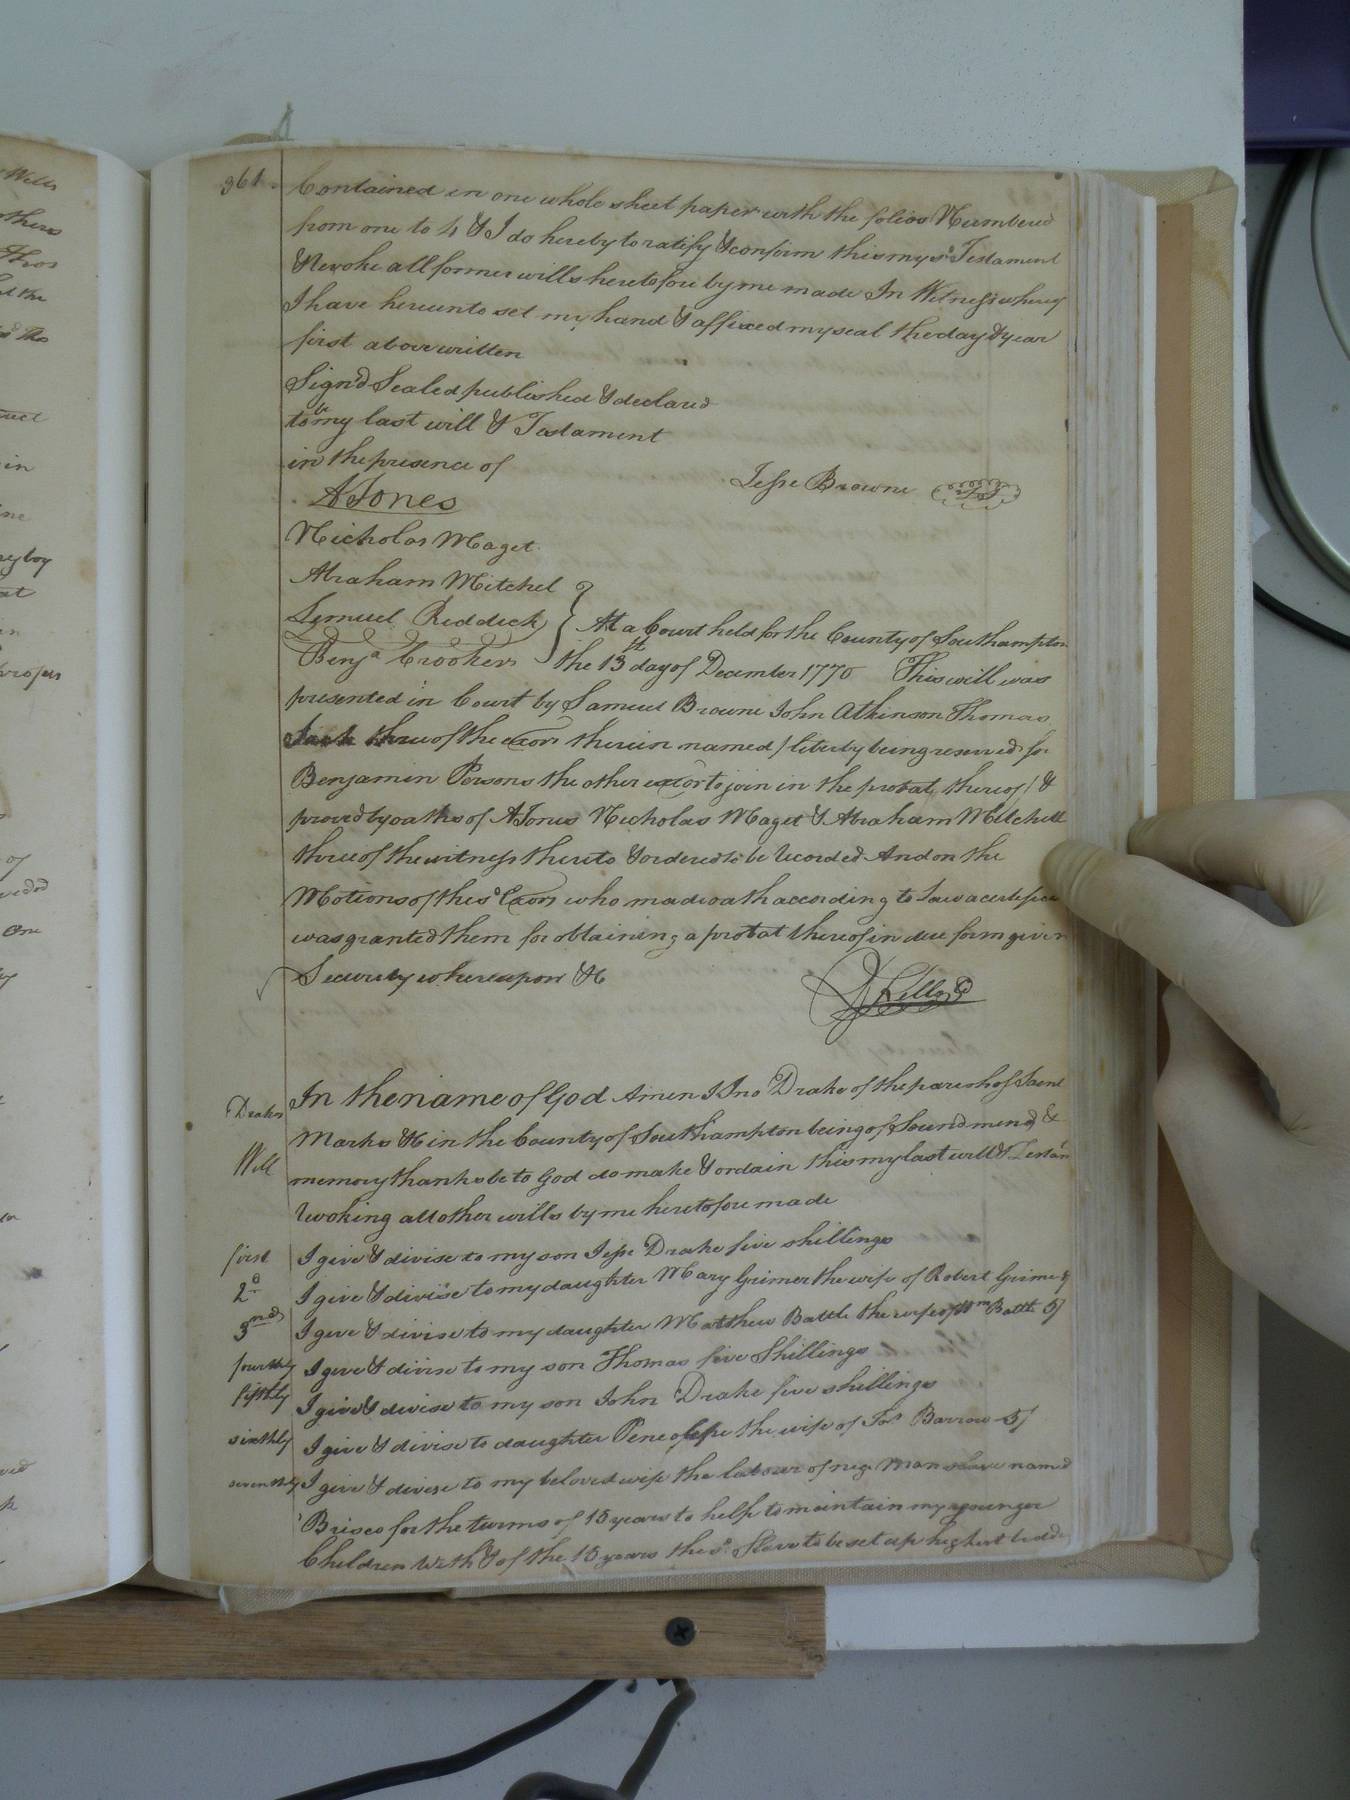 361. Contained in one whole sheet paper with the folios Numbered
from one to 4 & I do hereby to ratify & confirm this my sd Testament
& Revoke all former wills heretofore by me made In Witness whereof
I have hereunto set my hand & affixed my seal the day & year
first above written
Sign'd Sealed published & declared
to be my last will & Testament
in the presence of
Jesse Browne
A Jones
Nicholas Maget
Abraham Mitchel
Lemuel Riddick } At a Court held for the County of Southampton
Benja Crookers the 13th day of December 1770 This will was
presented in Court by Samuel Browne John Atkinson Thomas
three of the Exors therein named / liberty being reserved for
Benjamin Persons the other exor to join in the probat thereof / &
proved by oaths of A Jones Nicholas Maget & Abraham Mitchell
three of the witness thereto & ordered to be Recorded And on the
Motions of the sd Exors who made oath according to Law a certificate
was granted them for obtaining a probat thereof in due form given
Security whereupon &c
Drakes In the name of God Amen I Jno Drake of the parish of Saint
Marks & in the County of Southampton being of sound mind &
Will memory thanks be to God do make & ordain this my last will & Testam
Revoking all other wills by me heretofore made
first I give & divise to my son Jesse Drake five shillings
2d I give & divise to my daughter Mary Grimer the wife of Robert Grimer
3ndly I give & divise to my daughter Matthew Battle the wife of Wm Battle 5/
fourthly I give & divise to my son Thomas five Shillings
fifthly I give & divise to my son John Drake five shillings
sixthly I give & divise to daughter the wife of Jos Barrow 5/
seventhly I give & divise to my beloved wife the labour of neg man slave named
Brisco for the turms of 15 years to help to maintain my younger
Children with & of the 15 years the sd Slave to be set up highest bidder